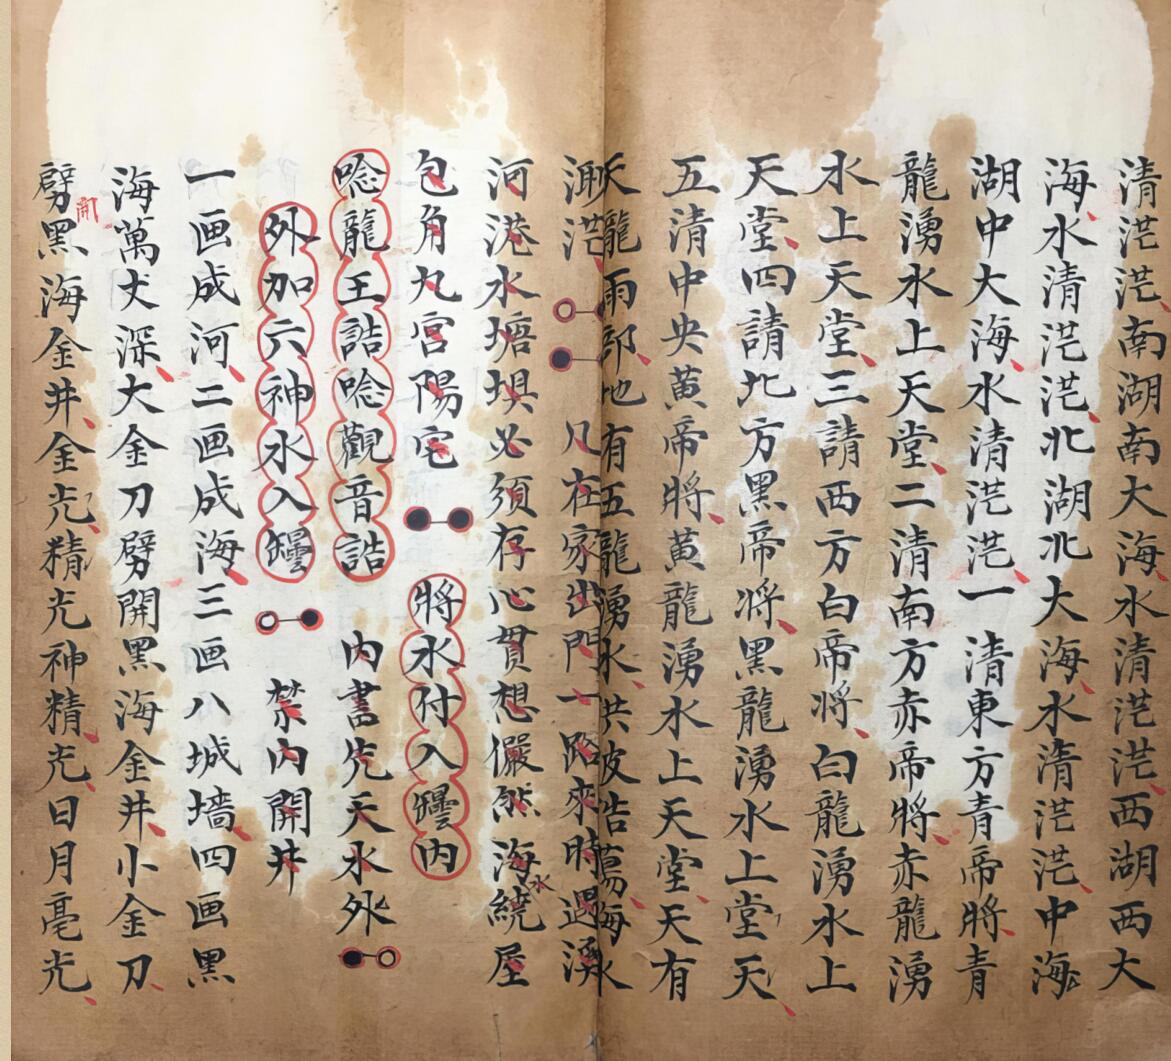 清茫茫南湖南大海水清茫茫西湖西大
海水清茫茫北湖北大海水清茫茫中海
湖中大海水清茫茫一清東方青帝將青
龍湧水上天堂二清南方赤帝將赤龍湧
水上天堂三請西方白帝將白龍湧水上
天堂四請北方黑帝將黑龍湧水上堂天
五清中央黄帝將黄龍湧水上天堂天有
天龍雨部地有五龍湧水共波浩蕩海水
茫 凡在家出門一路來時遇
河港水塘垻必須存心貫想儼然海水繞屋
包角九宮陽宅 將水付入罎内
唸龍王誥唸觀音誥 内書先天水外
外加六神水入罎 禁内開井
一画成河二画成海三画八城墻四画黑
海萬丈深大金刀劈開黑海金井小金刀
劈開黑海金井金光精光神精光日月毫光